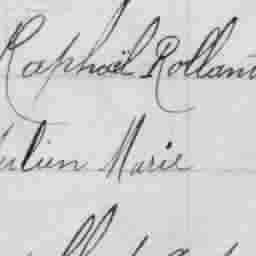 Raphaël Rolland
Julien Marie